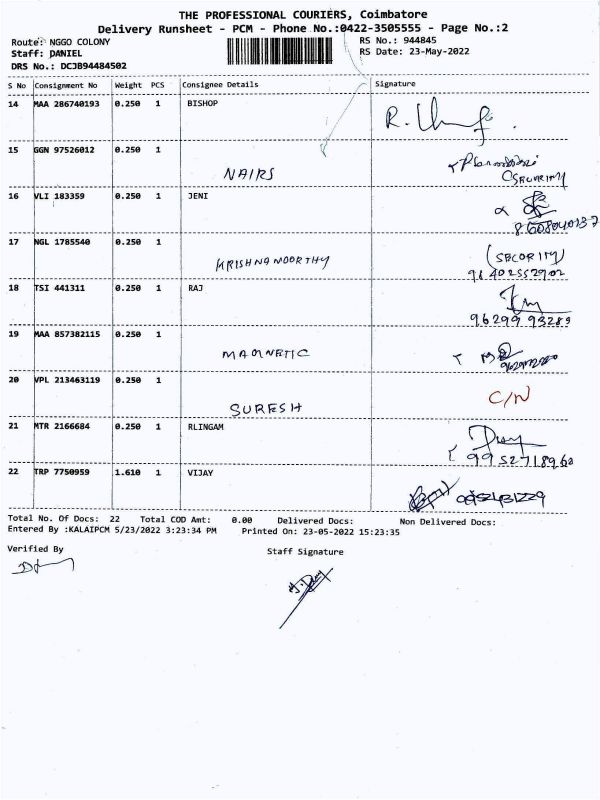 THE PROFESSIONAL COURIERS, Coimbatore
Delivery Runsheet - PCM - Phone No.:0422-3505555 - Page No.:2
Route: NGGO COLONY
RS No.: 944845
Staff: DANIEL
RS Date: 23-May-2022
DRS No.: DCJB94484502
S No Consignment No Weight PCS Consignee Details Signature
14 MAA 286740193 0.250 1 BISHOP
15 GGN 97526012 0.250 1
NAIRS
(SECURITY
16 VLI 183359 0.250 1 JENI
8608040137
17 NGL 1785540 0.250 1
KRISHNAMOORTHY (SECORITY)
96402552902
18 TSI 441311 0.250 1 RAJ
96299 93289
19 MAA 857382115 0.250 1
MAGNETIC
20 VPL 213463119 0.250 1
SURESH C/N
21 MTR 2166684 0.250 1 RLINGAM
9952718960
22 TRP 7750959 1.610 1 VIJAY
Total No. Of Docs: 22 Total COD Amt: 0.00 Delivered Docs: Non Delivered Docs:
Entered By :KALAIPCM 5/23/2022 3:23:34 PM Printed On: 23-05-2022 15:23:35
Verified By
Staff Signature